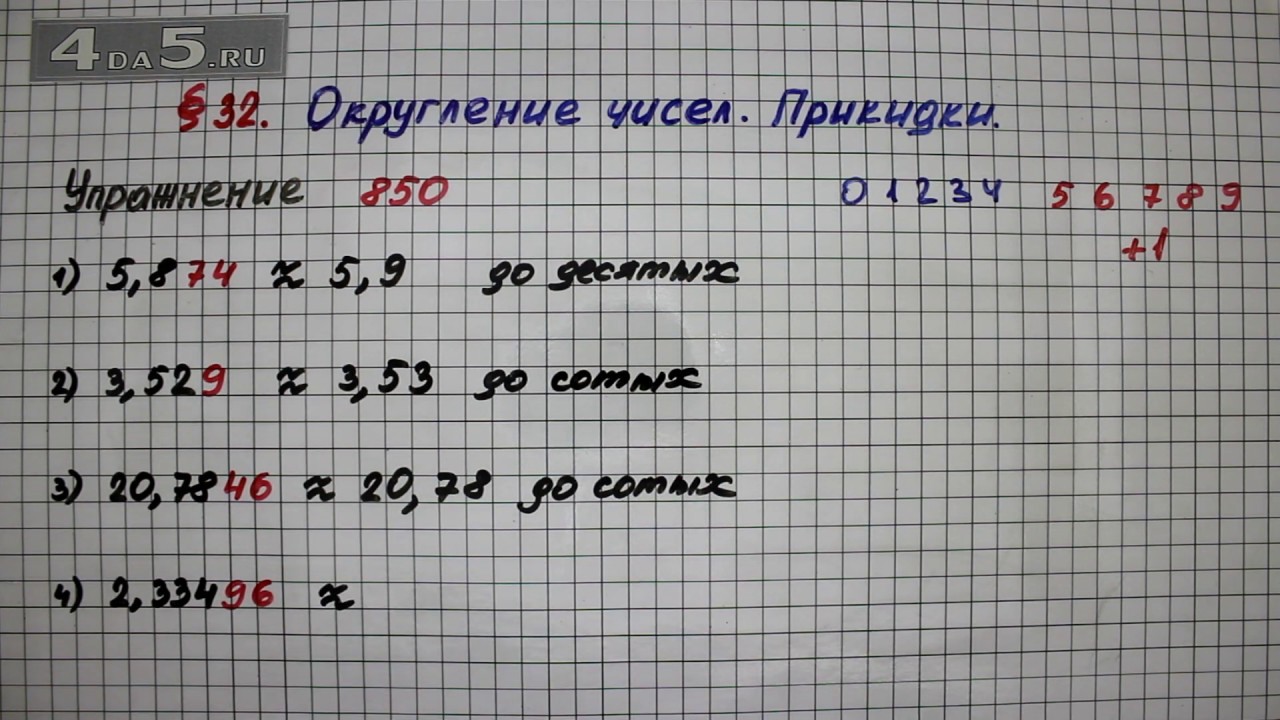 4DA5.RU
§ 32. Округление чисел. Прикидки.
Упражнение 850
0 1 2 3 4 5 6 7 8 9
+1
1) 5,874 ≈ 5,9 до десятых
2) 3,529 ≈ 3,53 до сотых
3) 20,7846 ≈ 20,78 до сотых
4) 2,33496 ≈